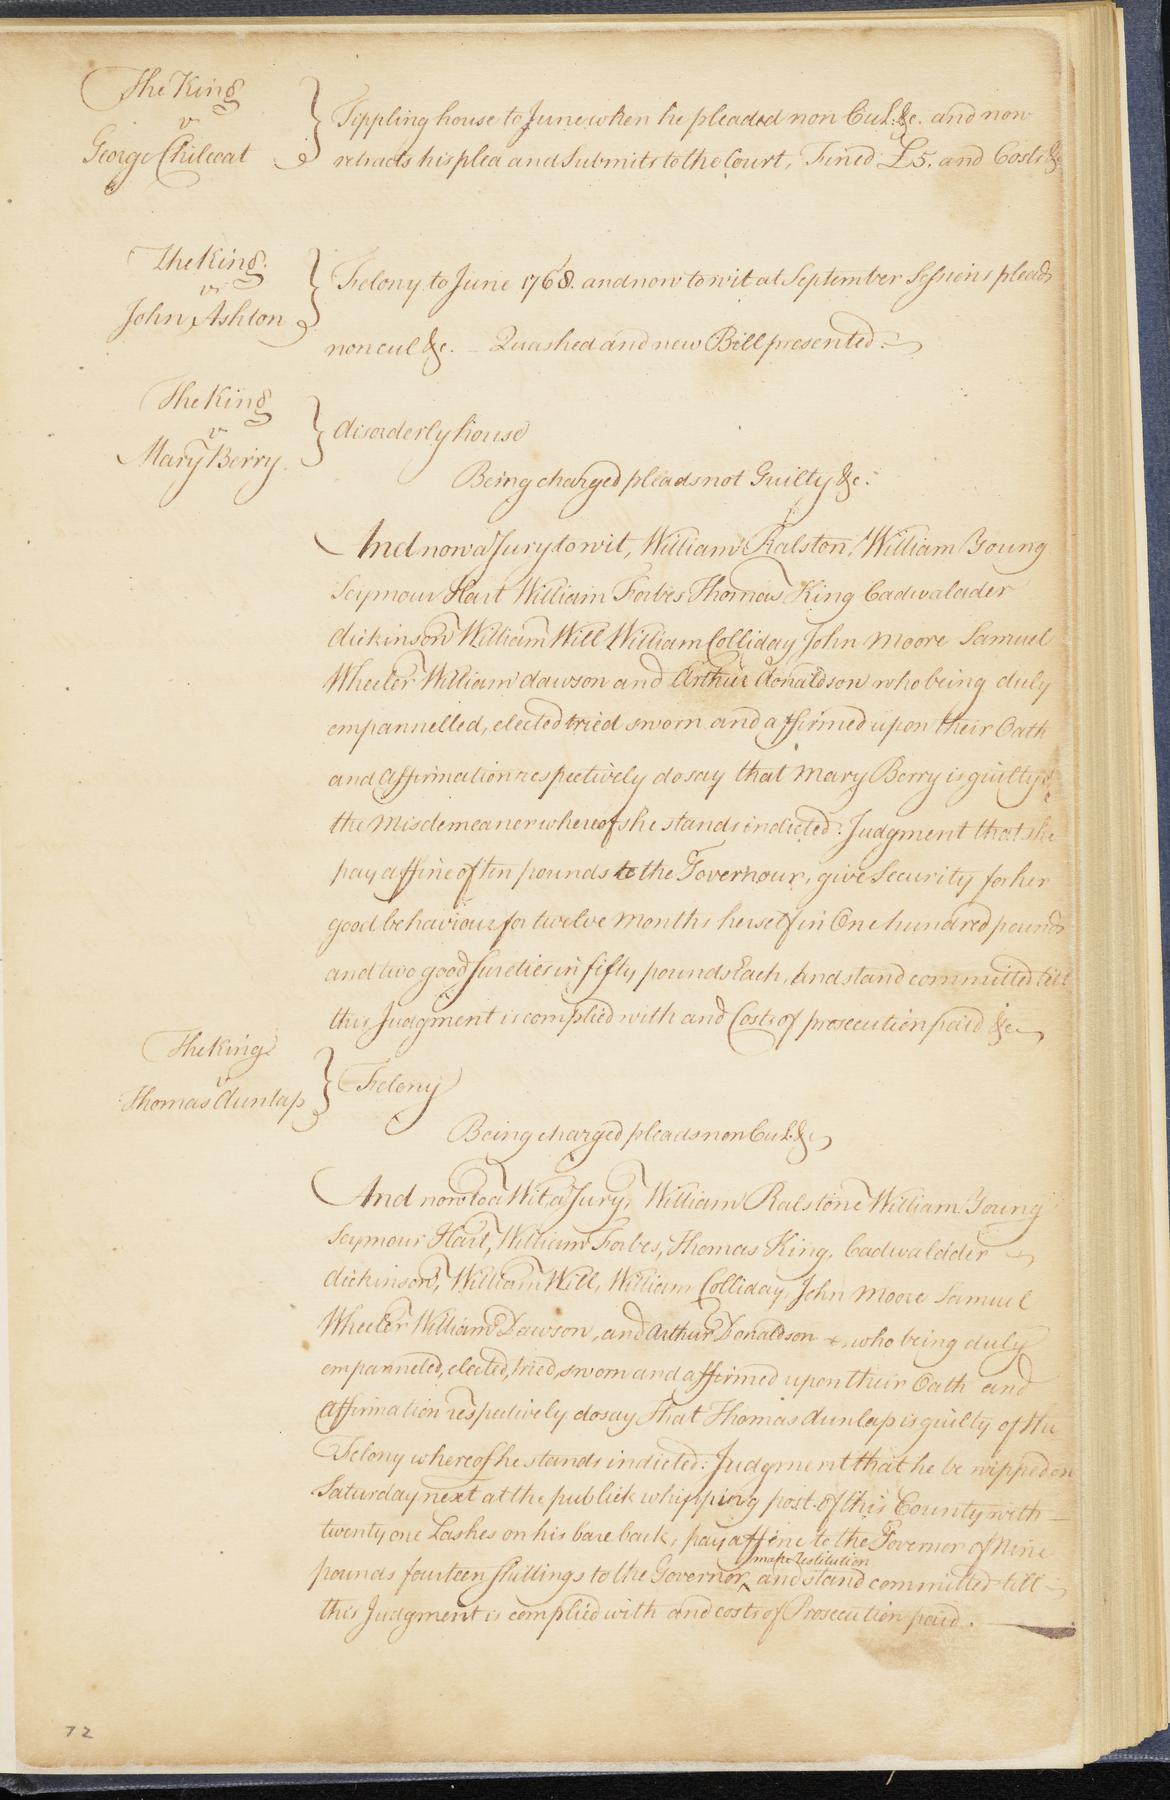 The King
v
George Chilcoat
Tippling house to June when he pleaded non Cul. &c. and now
retracts his plea and Submits to the Court, Fined £5. and Costs &c
The King
vs.
John Ashton
Felony to June 1768. and now to wit at September Sessions pleads
non cul &c. Quashed and new Bill presented.
The King
v
Mary Berry
disorderly house
Being charged pleads not Guilty &c.
And now a Jury to wit, William Ralston, William Young
Seymour Hart William Forbes Thomas King Cadwalader
dickinson William Will William Colliday John Moore Samuel
Wheeler William dawson and Arthur donaldson who being duly
empannelled, elected tried sworn and affirmed upon their Oath
and affirmation respectively do say that Mary Berry is guilty of
the Misdemeaner whereof she stands indicted. Judgment that she
pay a ffine of ten pounds to the Governour, give Security for her
good behaviour for twelve Months herself in One hundred pounds
and two good Sureties in fifty pounds Each, And stand committed till
this Judgment is complied with and Costs of prosecution paid &c
The King
v
Thomas dunlap
Felony
Being charged pleads non Cul. &c
And now to Wit, a Jury, William Ralstone William Young
Seymour Hart, William Forbes, Thomas King, Cadwalader
dickinson, William Will, William Colliday, John Moore Samuel
Wheeler William Dawson, and Arthur Donaldson who being duly
empanneled, elected, tried, sworn and affirmed upon their Oath and
affirmation respectively do say that Thomas dunlap is guilty of the
Felony whereof he stands indicted: Judgment that he be wipped on
Saturday next at the publick whipping post of this County with
twenty one Lashes on his bare back, pay a ffine to the Governor of Nine
pounds fourteen Shillings to the Governor, ^ make restitution and stand committed till
this Judgment is complied with and costs of Prosecution paid.
72